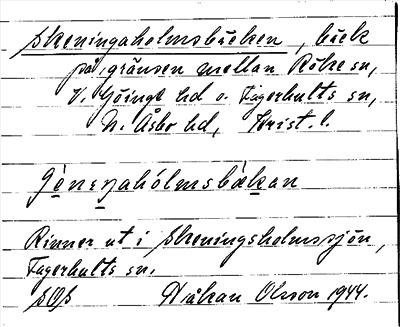 Skeningaholmsbäcken, bäck
på gränsen mellan Röke sn,
V. Göinge hd o. Fagerhults sn,
N. Åsbo hd, Krist. l.
Rinner ut i Skeningsholmssjön,
Fagerhults sn.
SOS Håkan Olsson 1944.